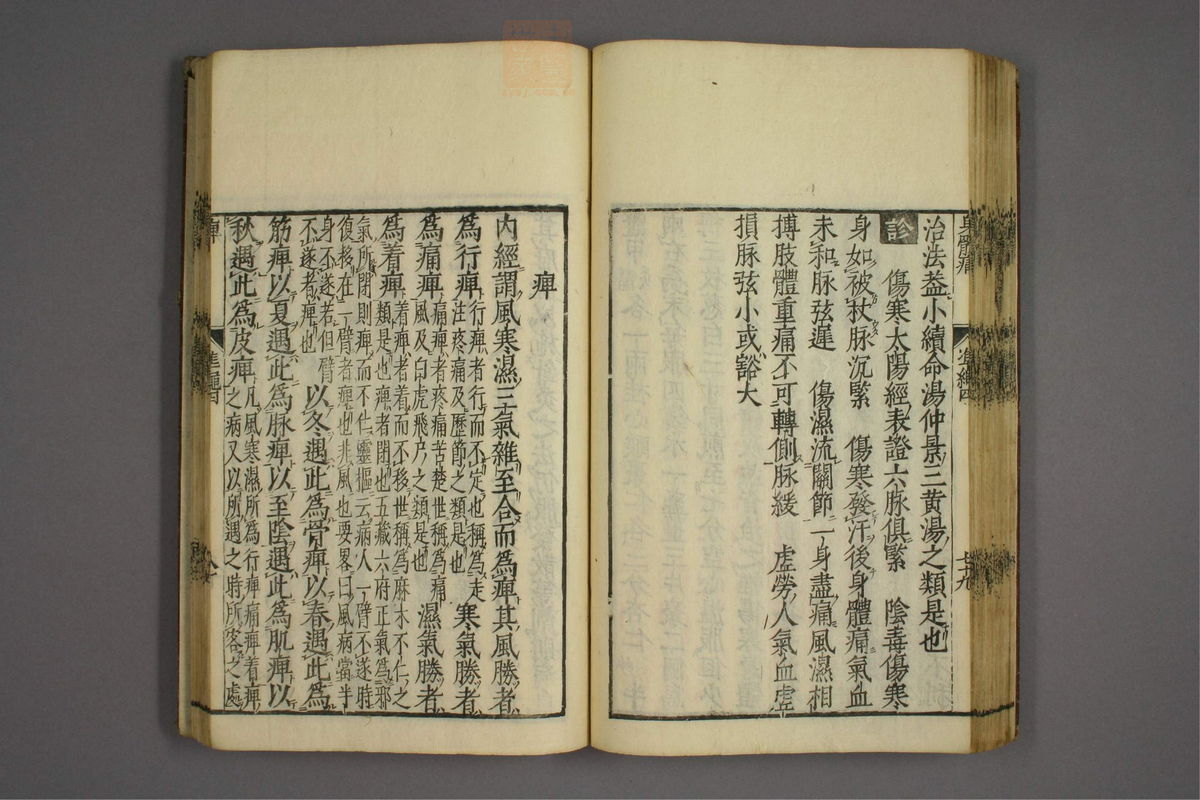 身體痛
治法葢小續命湯仲景三黄湯之類是也
診
傷寒太陽經表證六脉俱緊　陰毒傷寒
身如被杖脉沉緊　傷寒發汗後身體痛氣血
未和脉弦遲　傷濕流關節一身盡痛風濕相
搏肢體重痛不可轉側脉緩　虚勞人氣血虚
損脉弦小或豁大
痺
内經謂風寒濕三氣雜至合而爲痺其風勝者
爲行痺
行痺者行而不定也稱爲走
注疼痛及歷節之類是也
寒氣勝者
爲痛痺
痛痺者疼痛苦楚世稱爲痛
風及白虎飛尸之類是也
濕氣勝者
爲着痺
着痺者着而不移世稱爲麻木不仁之
類是也痺者閉也五藏六府正氣爲邪
氣所閉則痺而不仁靈樞云病人一臂不遂時
復移在一臂者痺也非風也要畧曰風病當半
身不遂若但臂
不遂者痺也
以冬遇此爲骨痺以春遇此爲
筋痺以夏遇此爲脉痺以至陰遇此爲肌痺以
秋遇此爲皮痺
凡風寒濕所爲行痺痛痺着痺
之病又以所遇之時所客之處